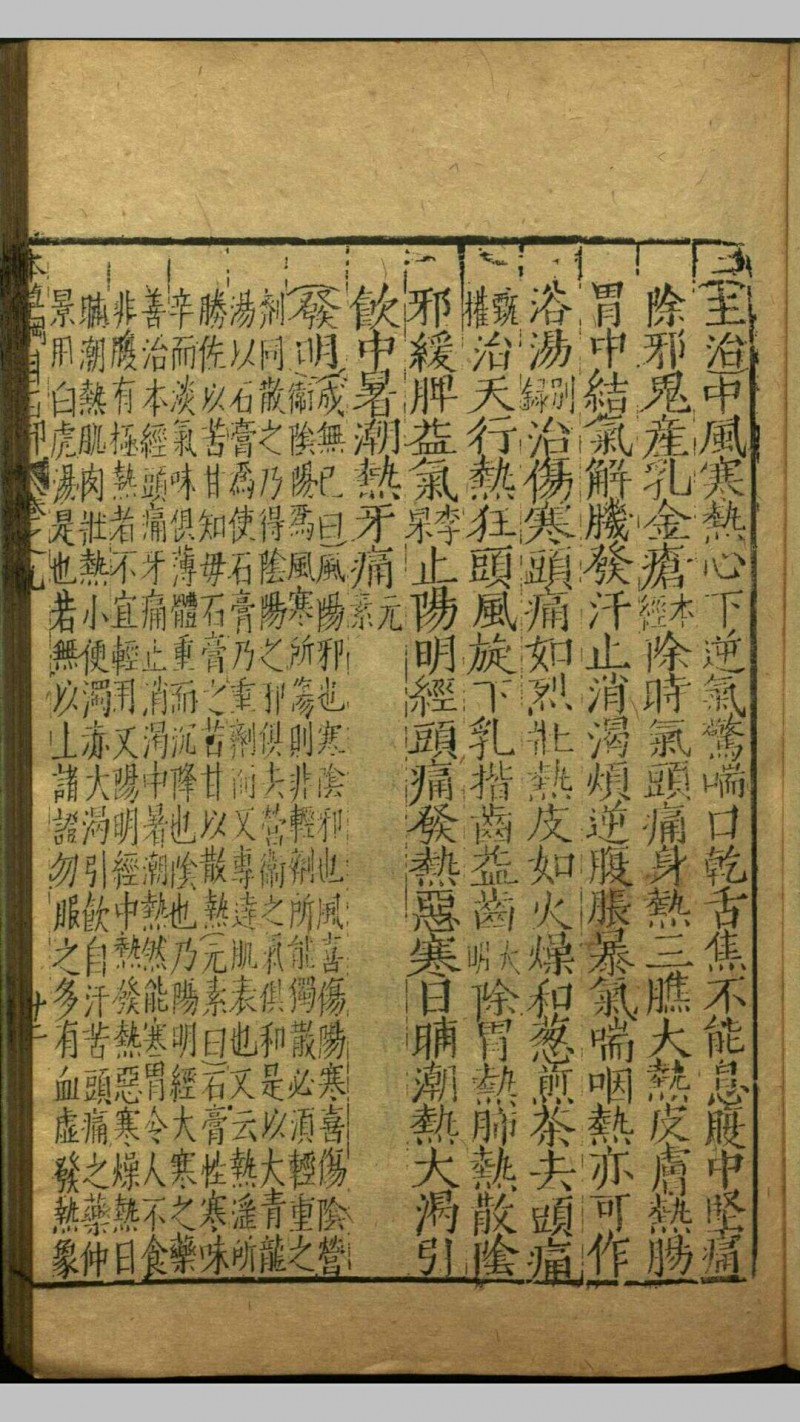 主治中風寒熱心下逆氣驚喘口乾舌焦不能息腹中堅痛
除邪鬼產乳金瘡本經除時氣頭痛身熱三膲大熱皮膚熱腸
胃中結氣解肌發汗止消渴煩逆腹脹暴氣喘咽熱亦可作
浴湯別録治傷寒頭痛如烈壯熱皮如火燥和葱煎茶去頭痛
甄權治天行熱狂頭風旋下乳揩齒益齒大明除胃熱肺熱散陰
邪緩脾益氣李杲止陽明經頭痛發熱惡寒日晡潮熱大渴引
飲中暑潮熱牙痛元素
發明成無已曰風陽邪也寒陰邪也風喜傷陽寒喜傷陰營
衞陰陽爲風寒所傷則非輕劑所能獨散必須輕重之
劑同散之乃得陰陽之邪俱去營衞之氣俱和是以大青龍
湯以石膏爲使石膏乃重劑而又專達肌表也又云熱淫所
勝佐以苦甘知母石膏之苦甘以散熱元素曰石膏性寒味
辛而淡氣味俱薄體重而沉降也陰也乃陽明經大寒之藥
善治本經頭痛牙痛止消渴中暑潮熱然能寒胃令人不食
非腹有極熱者不宜輕用又陽明經中熱發熱惡寒燥熱日
晡潮熱肌肉壯熱小便濁赤大渴引飲自汗苦頭痛之藥仲
景用白虎湯是也若無以上諸證勿服之多有血虛發熱象
本草綱目石部 卷之九 廿二